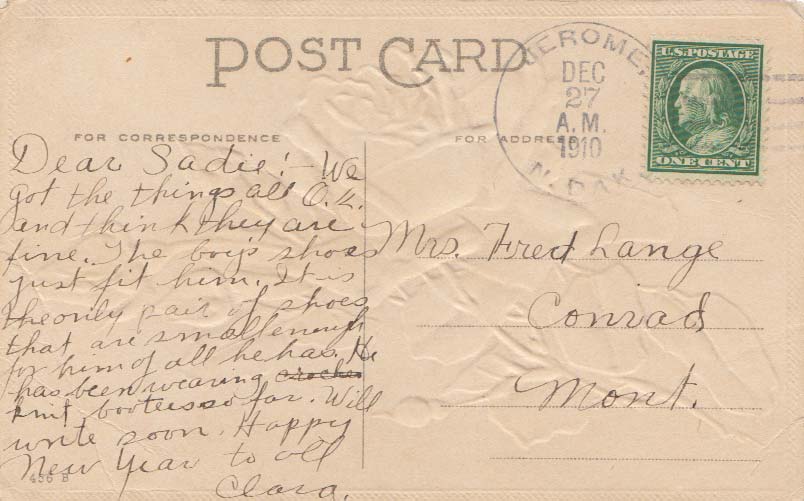 POST CARD
JEROME,
DEC
27
A.M.
1910
N. DAK.
U.S. POSTAGE
ONE CENT
FOR CORRESPONDENCE
FOR ADDRESS
Dear Sadie! - We
got the things all O.K.
and think they are
fine. The boy's shoes
just fit him. It is
the only pair of shoes
that are small enough
for him of all he has. He
has been wearing croche
knit bootees so far. Will
write soon. Happy
New Year to all
Clara.
Mrs. Fred Lange
Conrad
Mont.
456 B